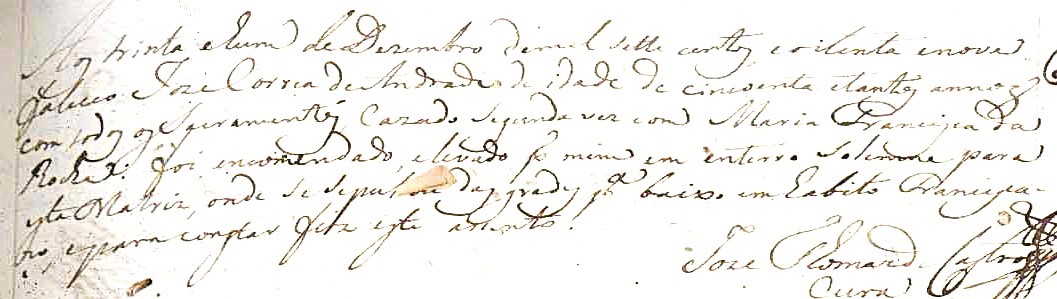 Aos trinta e hum de Dezembro de mil sette centos e oitenta e nove
faleceo Joze Correa de Andrade de idade de cincoenta e tantos annos
com todos os Sacramentos Cazado segunda vez com Maria Francisca da
Rocha: foi encomendado, e levado pr mim em enterro solemne para
esta Matriz, onde se sepultou das grades pª baixo em habito Francisca-
no, e para constar fiz este asento.
Joze Thomaz de Castro
Cura